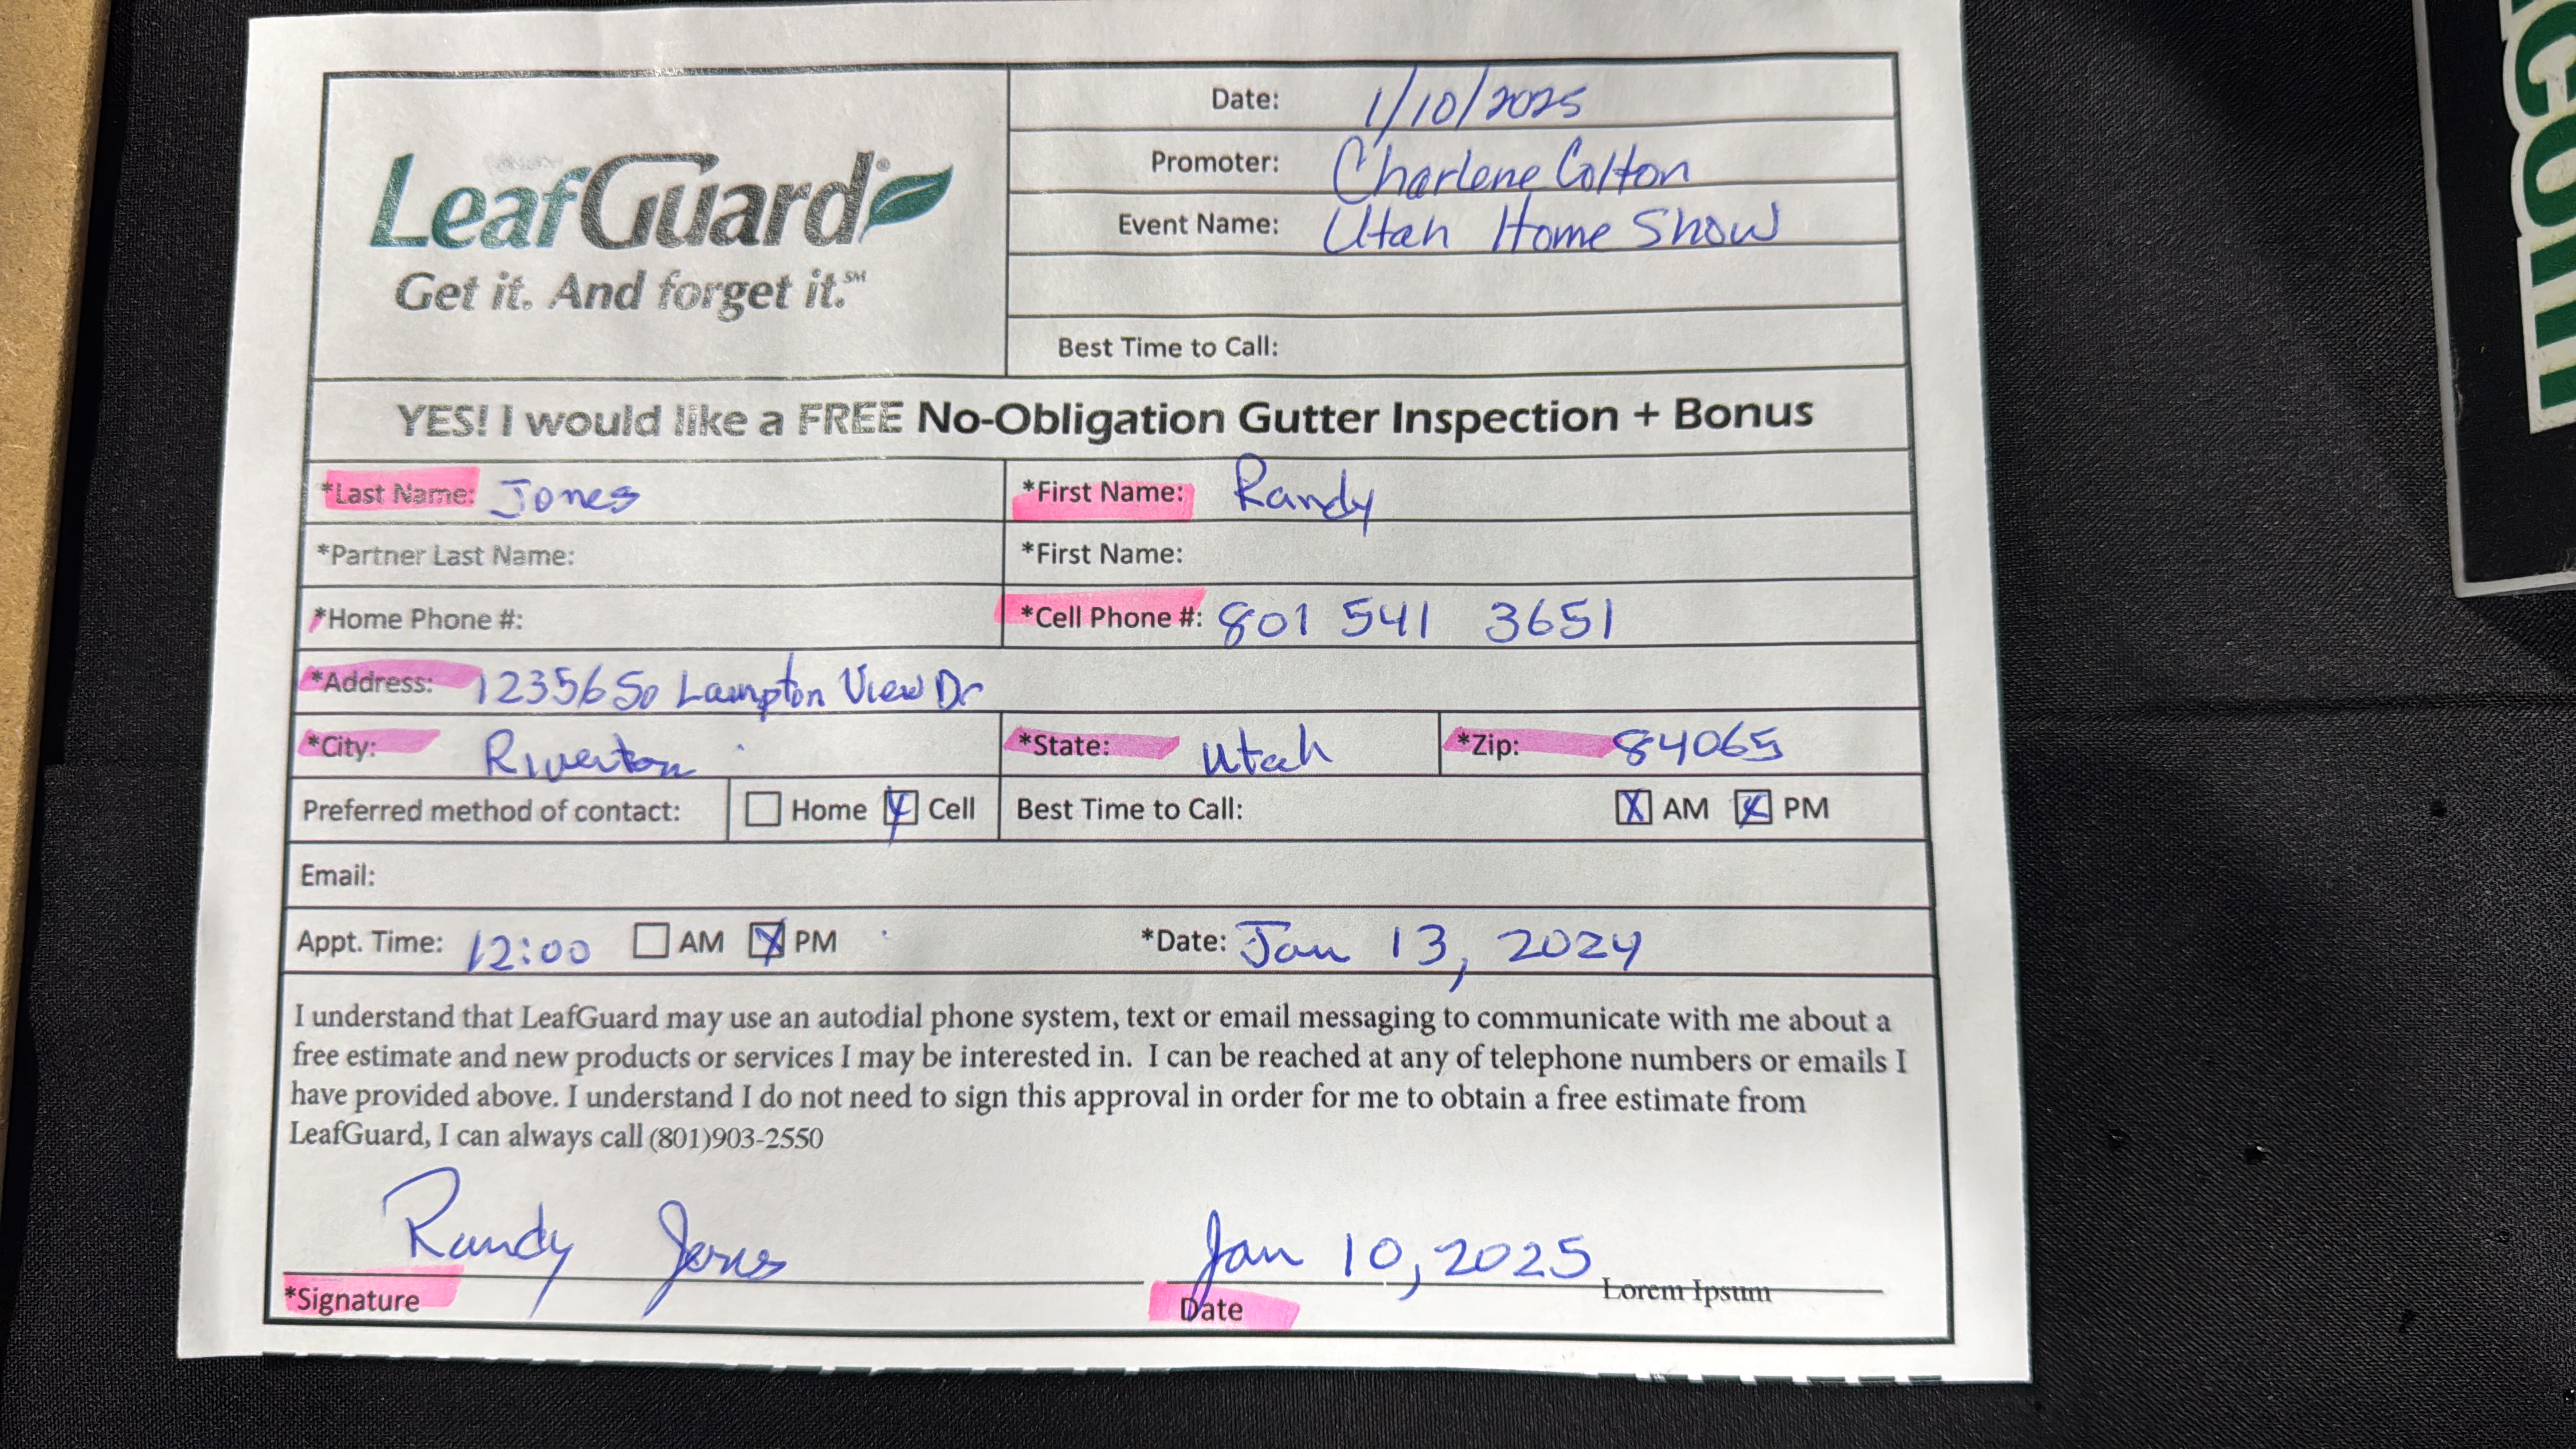 LeafGuard®
Get it. And forget it.℠
Date: 1/10/2025
Promoter: Charlene Calton
Event Name: Utah Home Show
Best Time to Call:
YES! I would like a FREE No-Obligation Gutter Inspection + Bonus
*Last Name: Jones *First Name: Randy
*Partner Last Name: *First Name:
*Home Phone #: *Cell Phone #: 801 541 3651
*Address: 12356 So Lampton View Dr
*City: Riverton *State: Utah *Zip: 84065
Preferred method of contact: ☐ Home ☒ Cell Best Time to Call: ☒ AM ☒ PM
Email:
Appt. Time: 12:00 ☐ AM ☒ PM *Date: Jan 13, 2024
I understand that LeafGuard may use an autodial phone system, text or email messaging to communicate with me about a
free estimate and new products or services I may be interested in. I can be reached at any of telephone numbers or emails I
have provided above. I understand I do not need to sign this approval in order for me to obtain a free estimate from
LeafGuard, I can always call (801)903-2550
Randy Jones Jan 10, 2025 Lorem Ipsum
*Signature Date
com